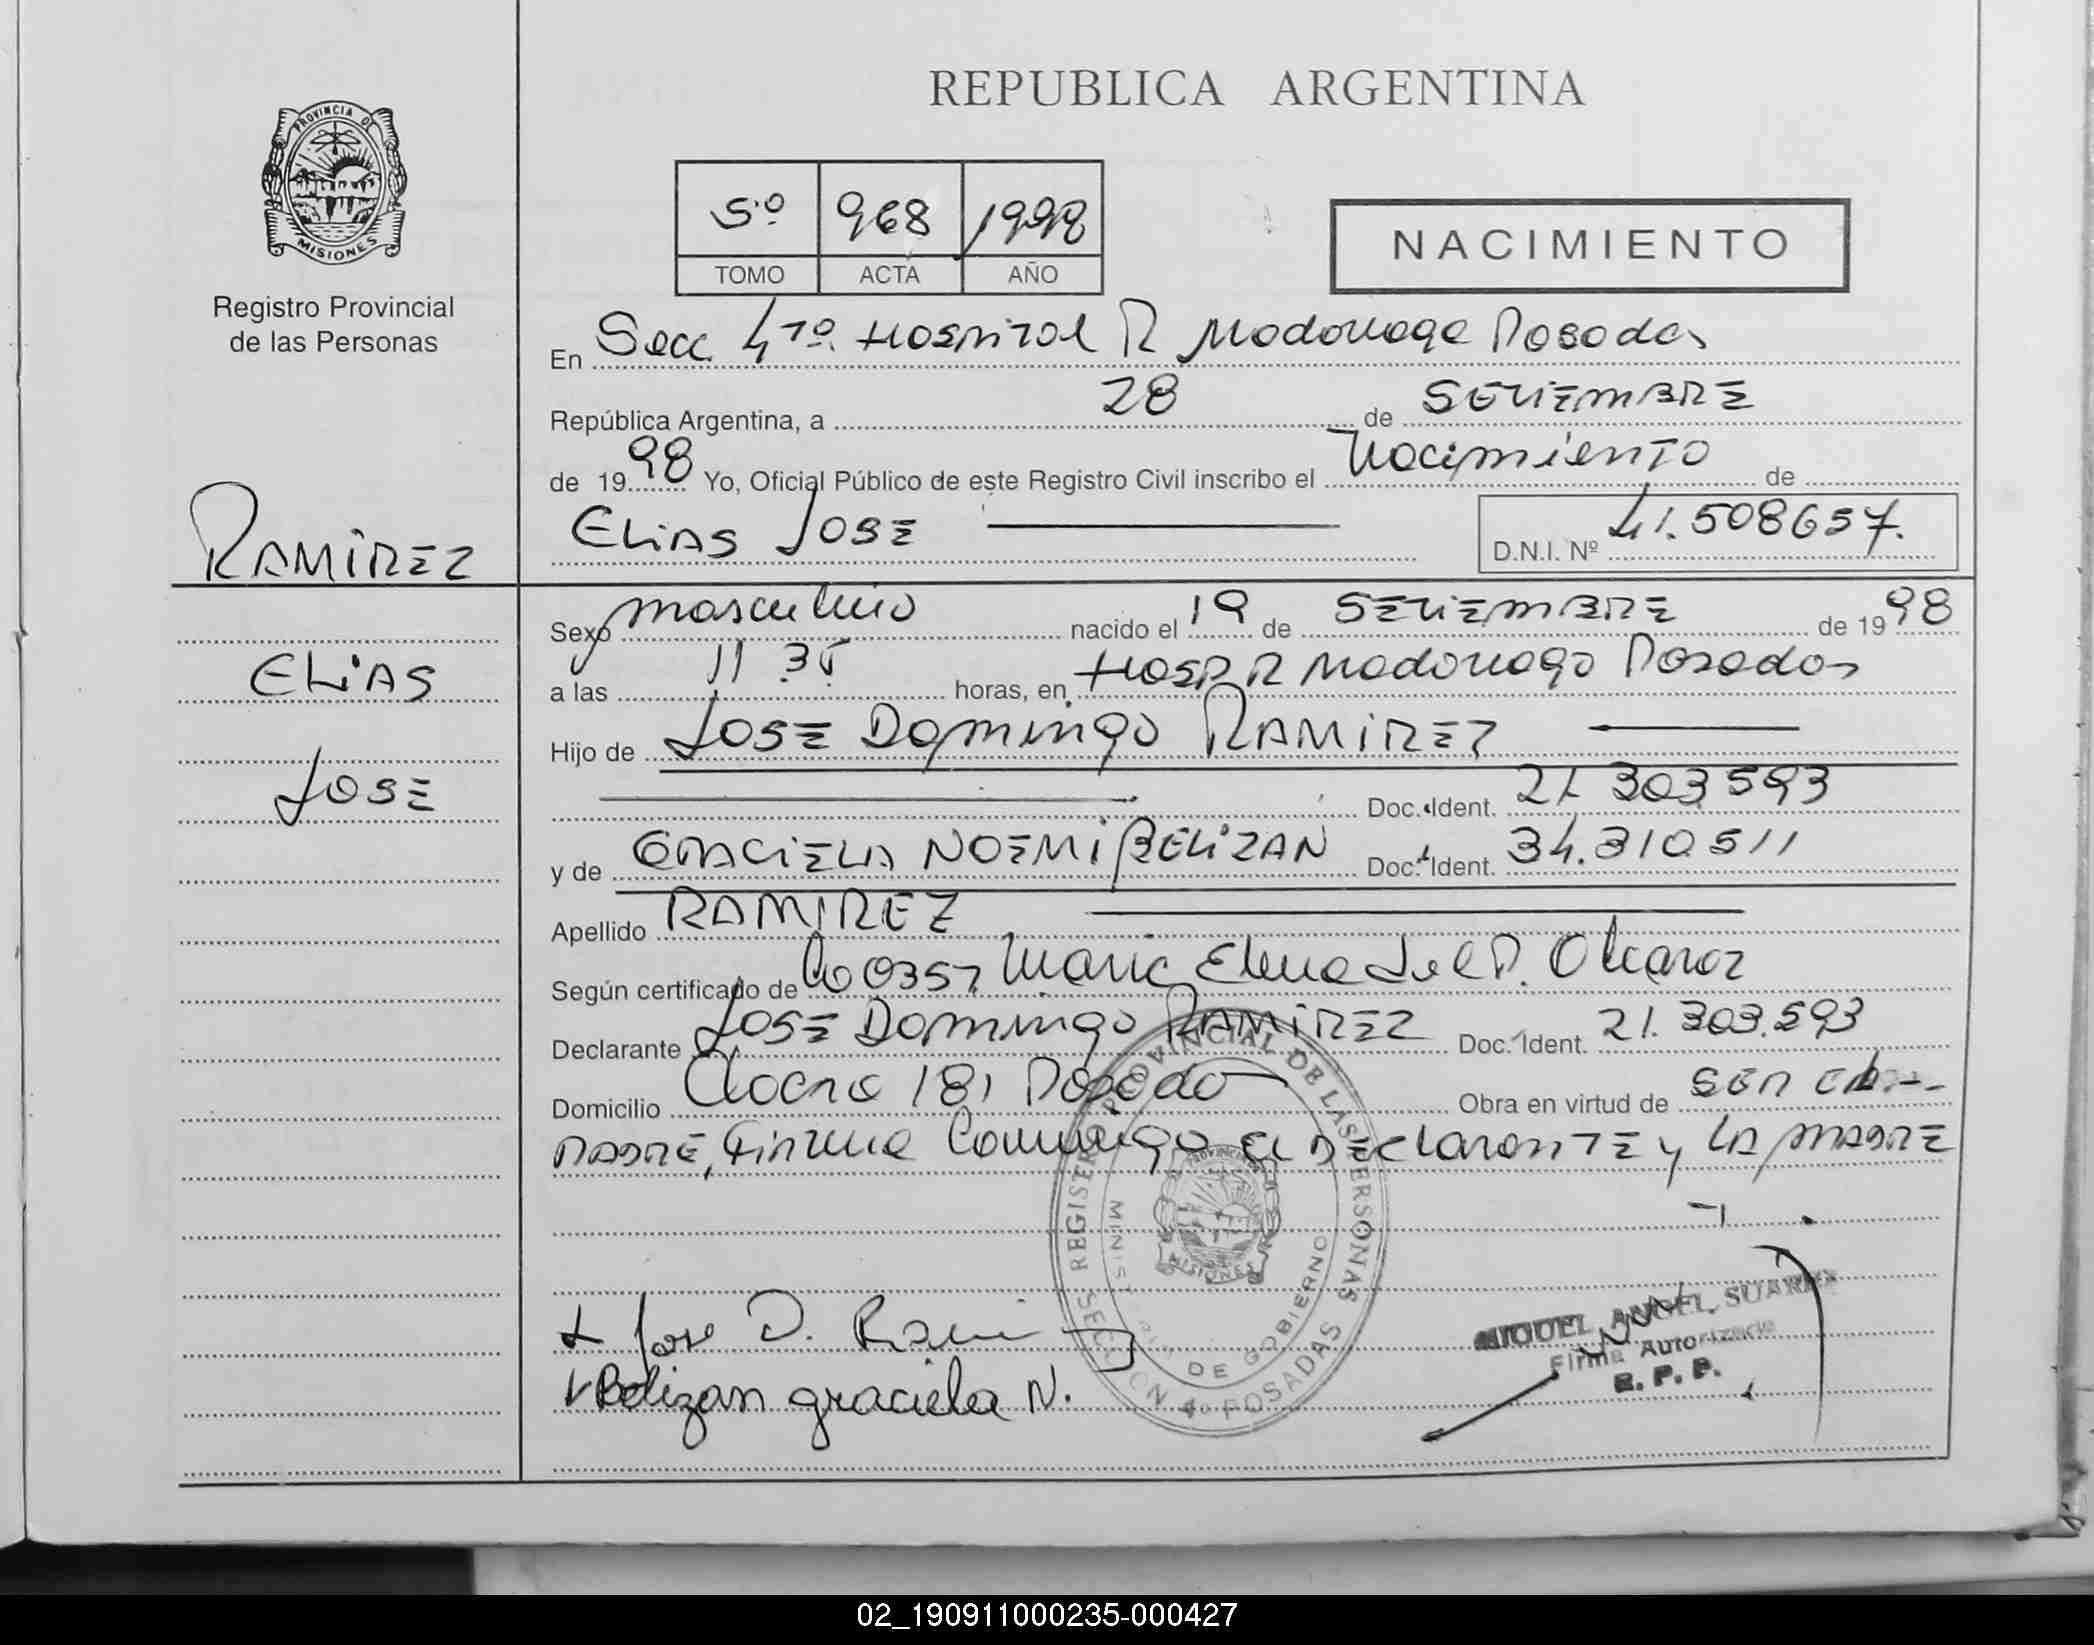 REPUBLICA ARGENTINA
PROVINCIA D
MISIONES
Registro Provincial
de las Personas
5º 968 1998
TOMO ACTA AÑO
NACIMIENTO
En Secc. 4ta. Hospital R Madariaga Posadas
República Argentina, a 28 de SETIEMBRE
de 1998 Yo, Oficial Público de este Registro Civil inscribo el Nacimiento de
ELIAS JOSE
D.N.I. Nº 41.508657.
RAMIREZ
ELIAS
JOSE
Sexo masculino nacido el 19 de SETIEMBRE de 1998
a las 11 35 horas, en HOSP R Madariaga Posadas
Hijo de JOSE Domingo RAMIREZ
Doc. Ident. 21 303 593
y de GRACIELA NOEMI BELIZAN Doc. Ident. 34.310.511
Apellido RAMIREZ
Según certificado de Maria Elena del P. Alcaraz
Declarante JOSE Domingo RAMIREZ Doc. Ident. 21.303.593
Domicilio 181 Posadas Obra en virtud de SER EL
PADRE, Firma Conmigo el DEClaranTE y LA MADRE
REGISTRO PROVINCIAL DE LAS PERSONAS
MINISTERIO DE GOBIERNO
PROVINCIA
MISIONES
SECCION 4º POSADAS
Jose D. Rami
Belizan graciela N.
MIGUEL ANGEL SUAREZ
Firma Autorizada
R. P. P.
02_190911000235-000427